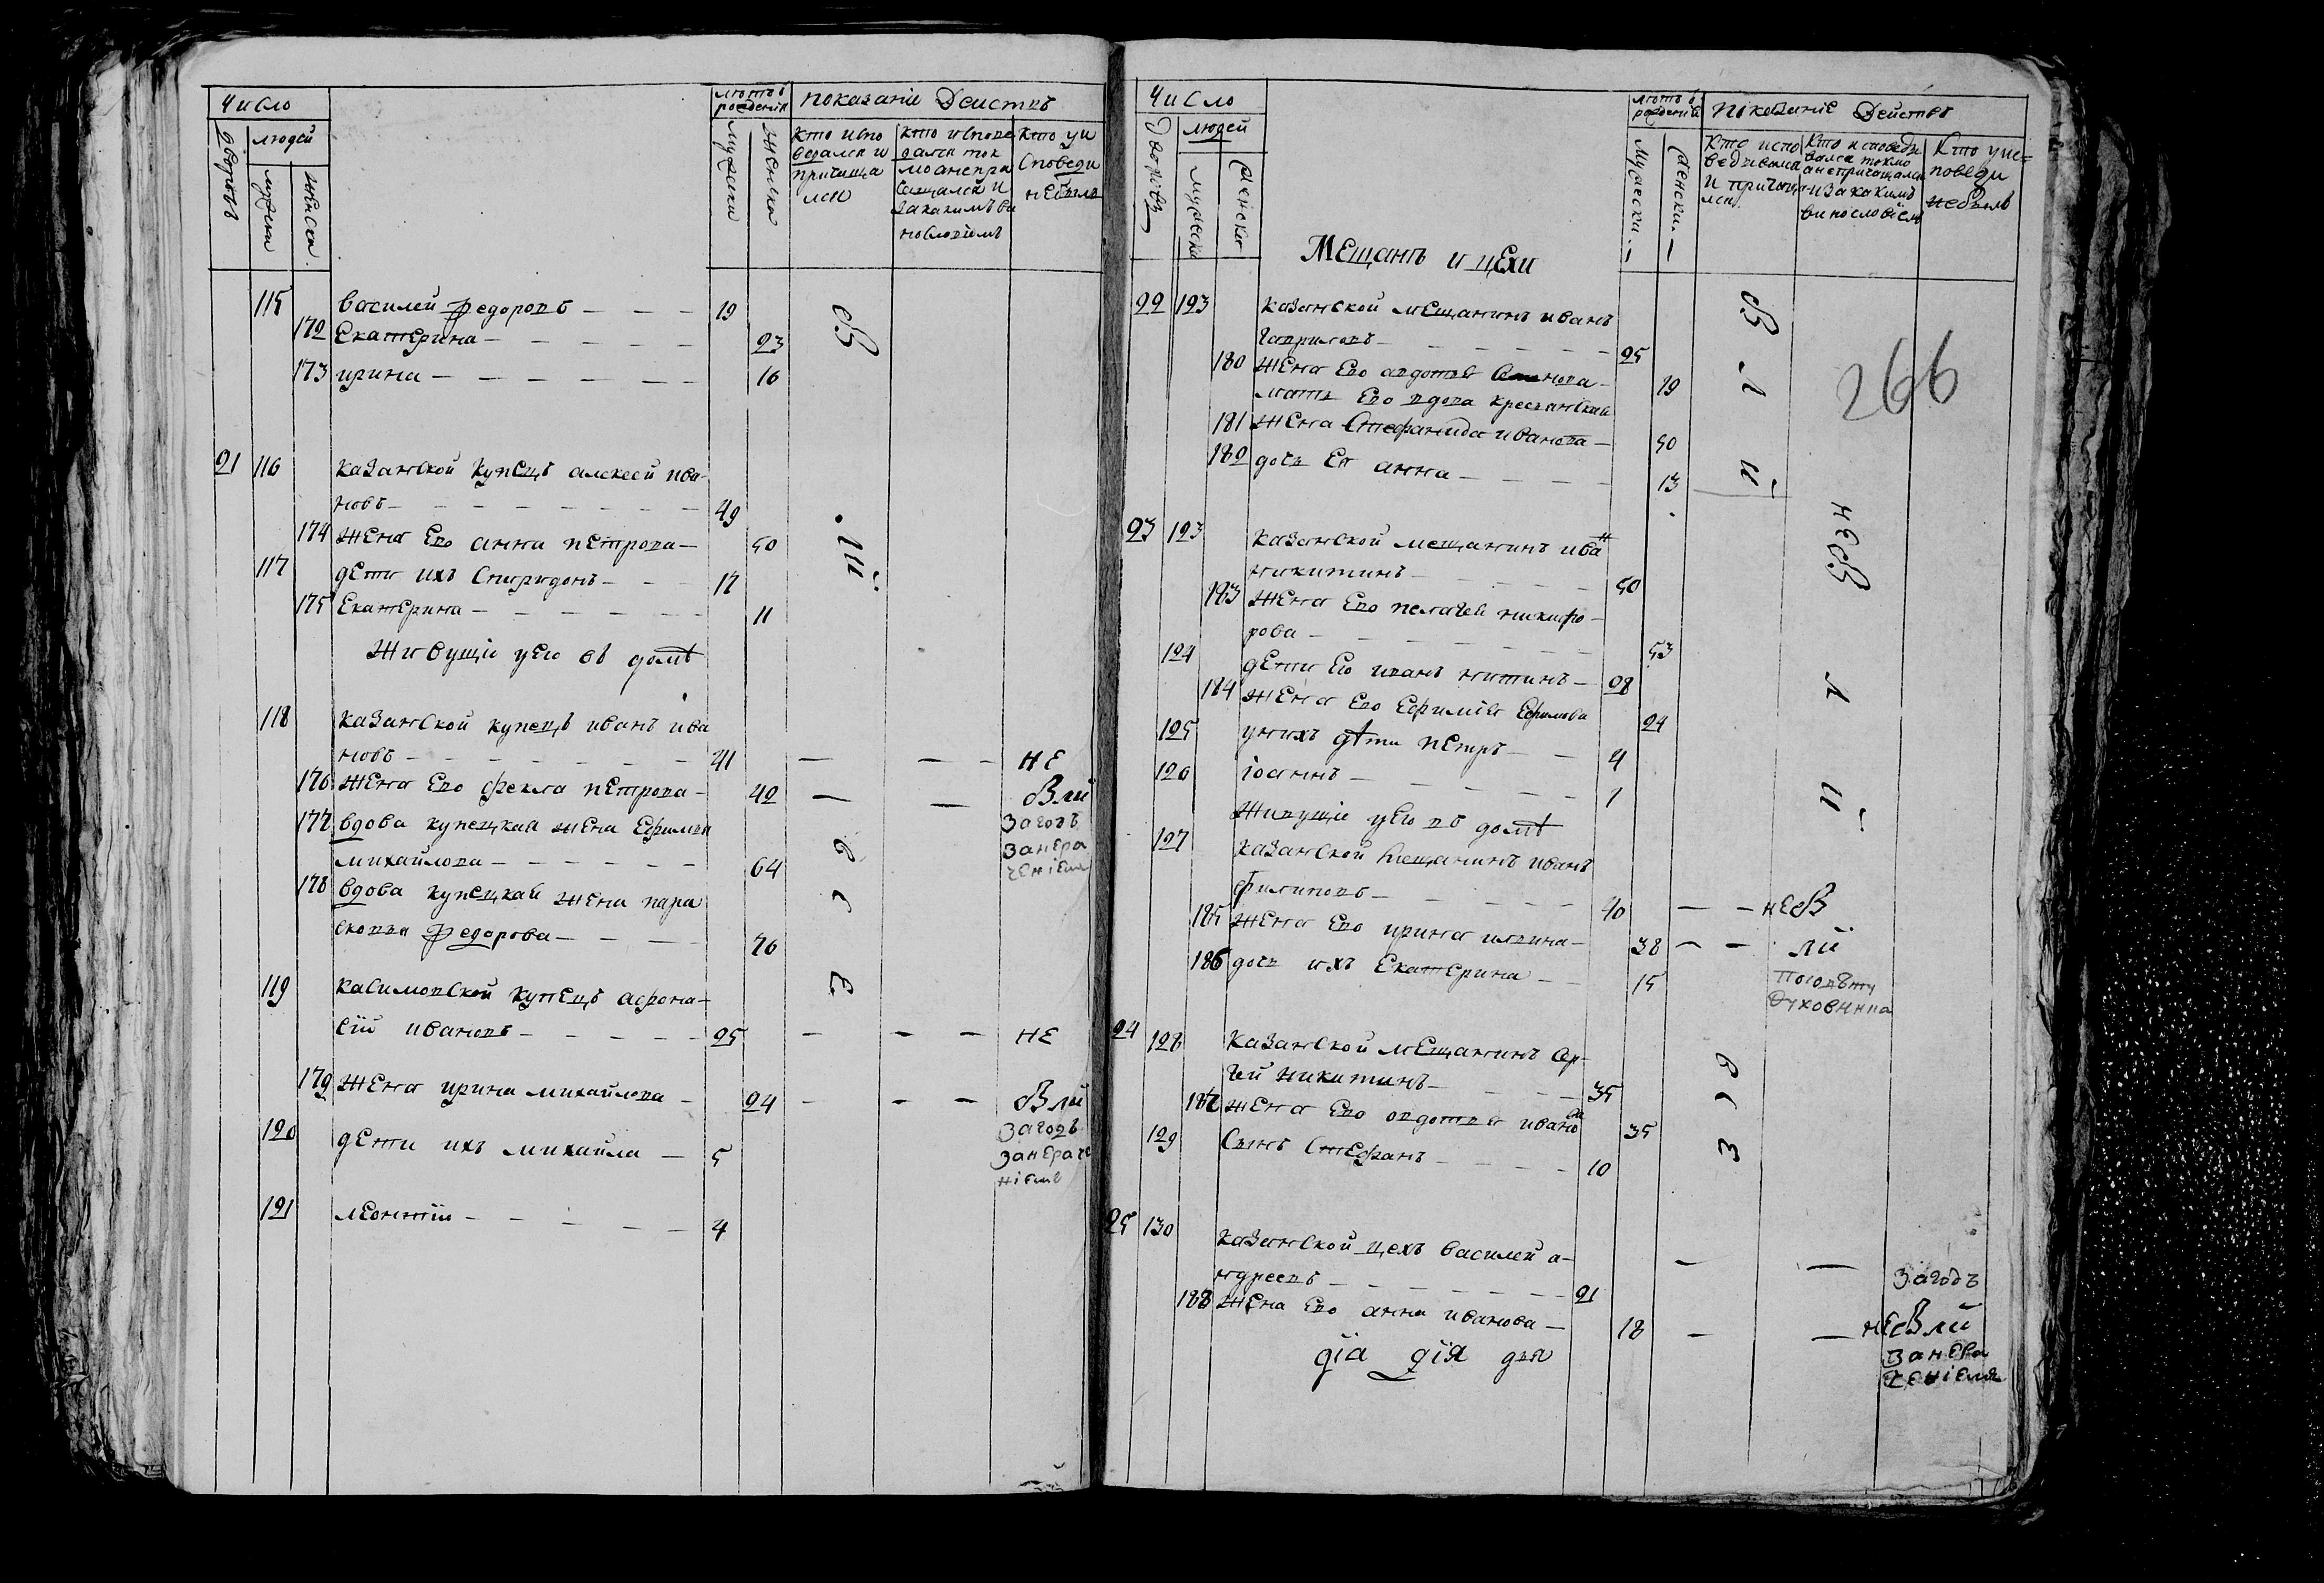 Число
людей
дворовъ
мужска
женска
лѣтъ
рожденія
мужеска
женска
показаніи Действъ
Кто испо
ведался и
причаща
лся
Кто испове
дался ток
мо а непри
чащался и
за какимъ ви
нословіемъ
Кто у и
споведи
небылъ
115 Василей Федоровъ 19
172 Екатерина 23
173 ирина 16
были
21 116 казанской купецъ алексей ива
новъ 49
174 жена Ево анна петрова 50
117 дети ихъ Спиридонъ 17
175 Екатерина 11
Живущіе у Его въ домѣ
118 казанской купецъ иванъ ива
новъ 41 — — не
176 жена Ево фекла петрова 42 — — были
177 вдова купецкая жена Ефимья
михайлова 64
загодъ
занера
ченіемъ
178 вдова купецкая жена пара
сковья Федорова 76
119 касимовской купецъ афона
сій ивановъ 25 — — — не
179 жена ирина михайлова 24 — — — были
загодъ
занераче
ніемъ
120 дети ихъ михайла 5
121 леонтіи 4
Число
людей
Дворовъ
мужеска
женска
лѣтъ
рожденія
Мужески
женски
показаніе Действъ
Кто испо
ведывался
и причаща
лся
Кто исповеды
вался токмо
а непричащался
и за какимъ
винословіем
Кто у ис=
поведи
небылъ
Мещанъ и цехи
266
22 123 казанской мещанинъ иванъ
Гавриловъ 25
180 жена Ево авдотья Семенова 19
мать Ево вдова кресьанская
181 жена Стефанида иванова 50
182 дочь Ея анна 13
были
23 123 казанской мещанинъ иван
никитинъ 50
183 жена Ево пелагея никифо
рова 53
124 дети Ево иванъ нитинъ 28
184 жена Ево Ефимія Ефимова 24
125 у нихъ дѣти петръ 4
126 іоаннъ 1
небыли
Живущіе у Его въ домѣ
127 казанской мещанинъ иванъ
филиповъ 40 — — небы
185 жена Ево ирина ильина 38 — — ли
186 дочь ихъ Екатерина 15
посовѣту
духовника
24 128 казанской мещанинъ Сер
гей никитинъ 35
187 жена Ево авдотья ивано
ва 35
129 Сынъ Стефанъ 10
25 130 казанской цехъ василей а
ндреевъ 21 — — загодъ
188 жена Ево анна иванова 18 — — небыли
занера
ченіемъ
діа дія дья